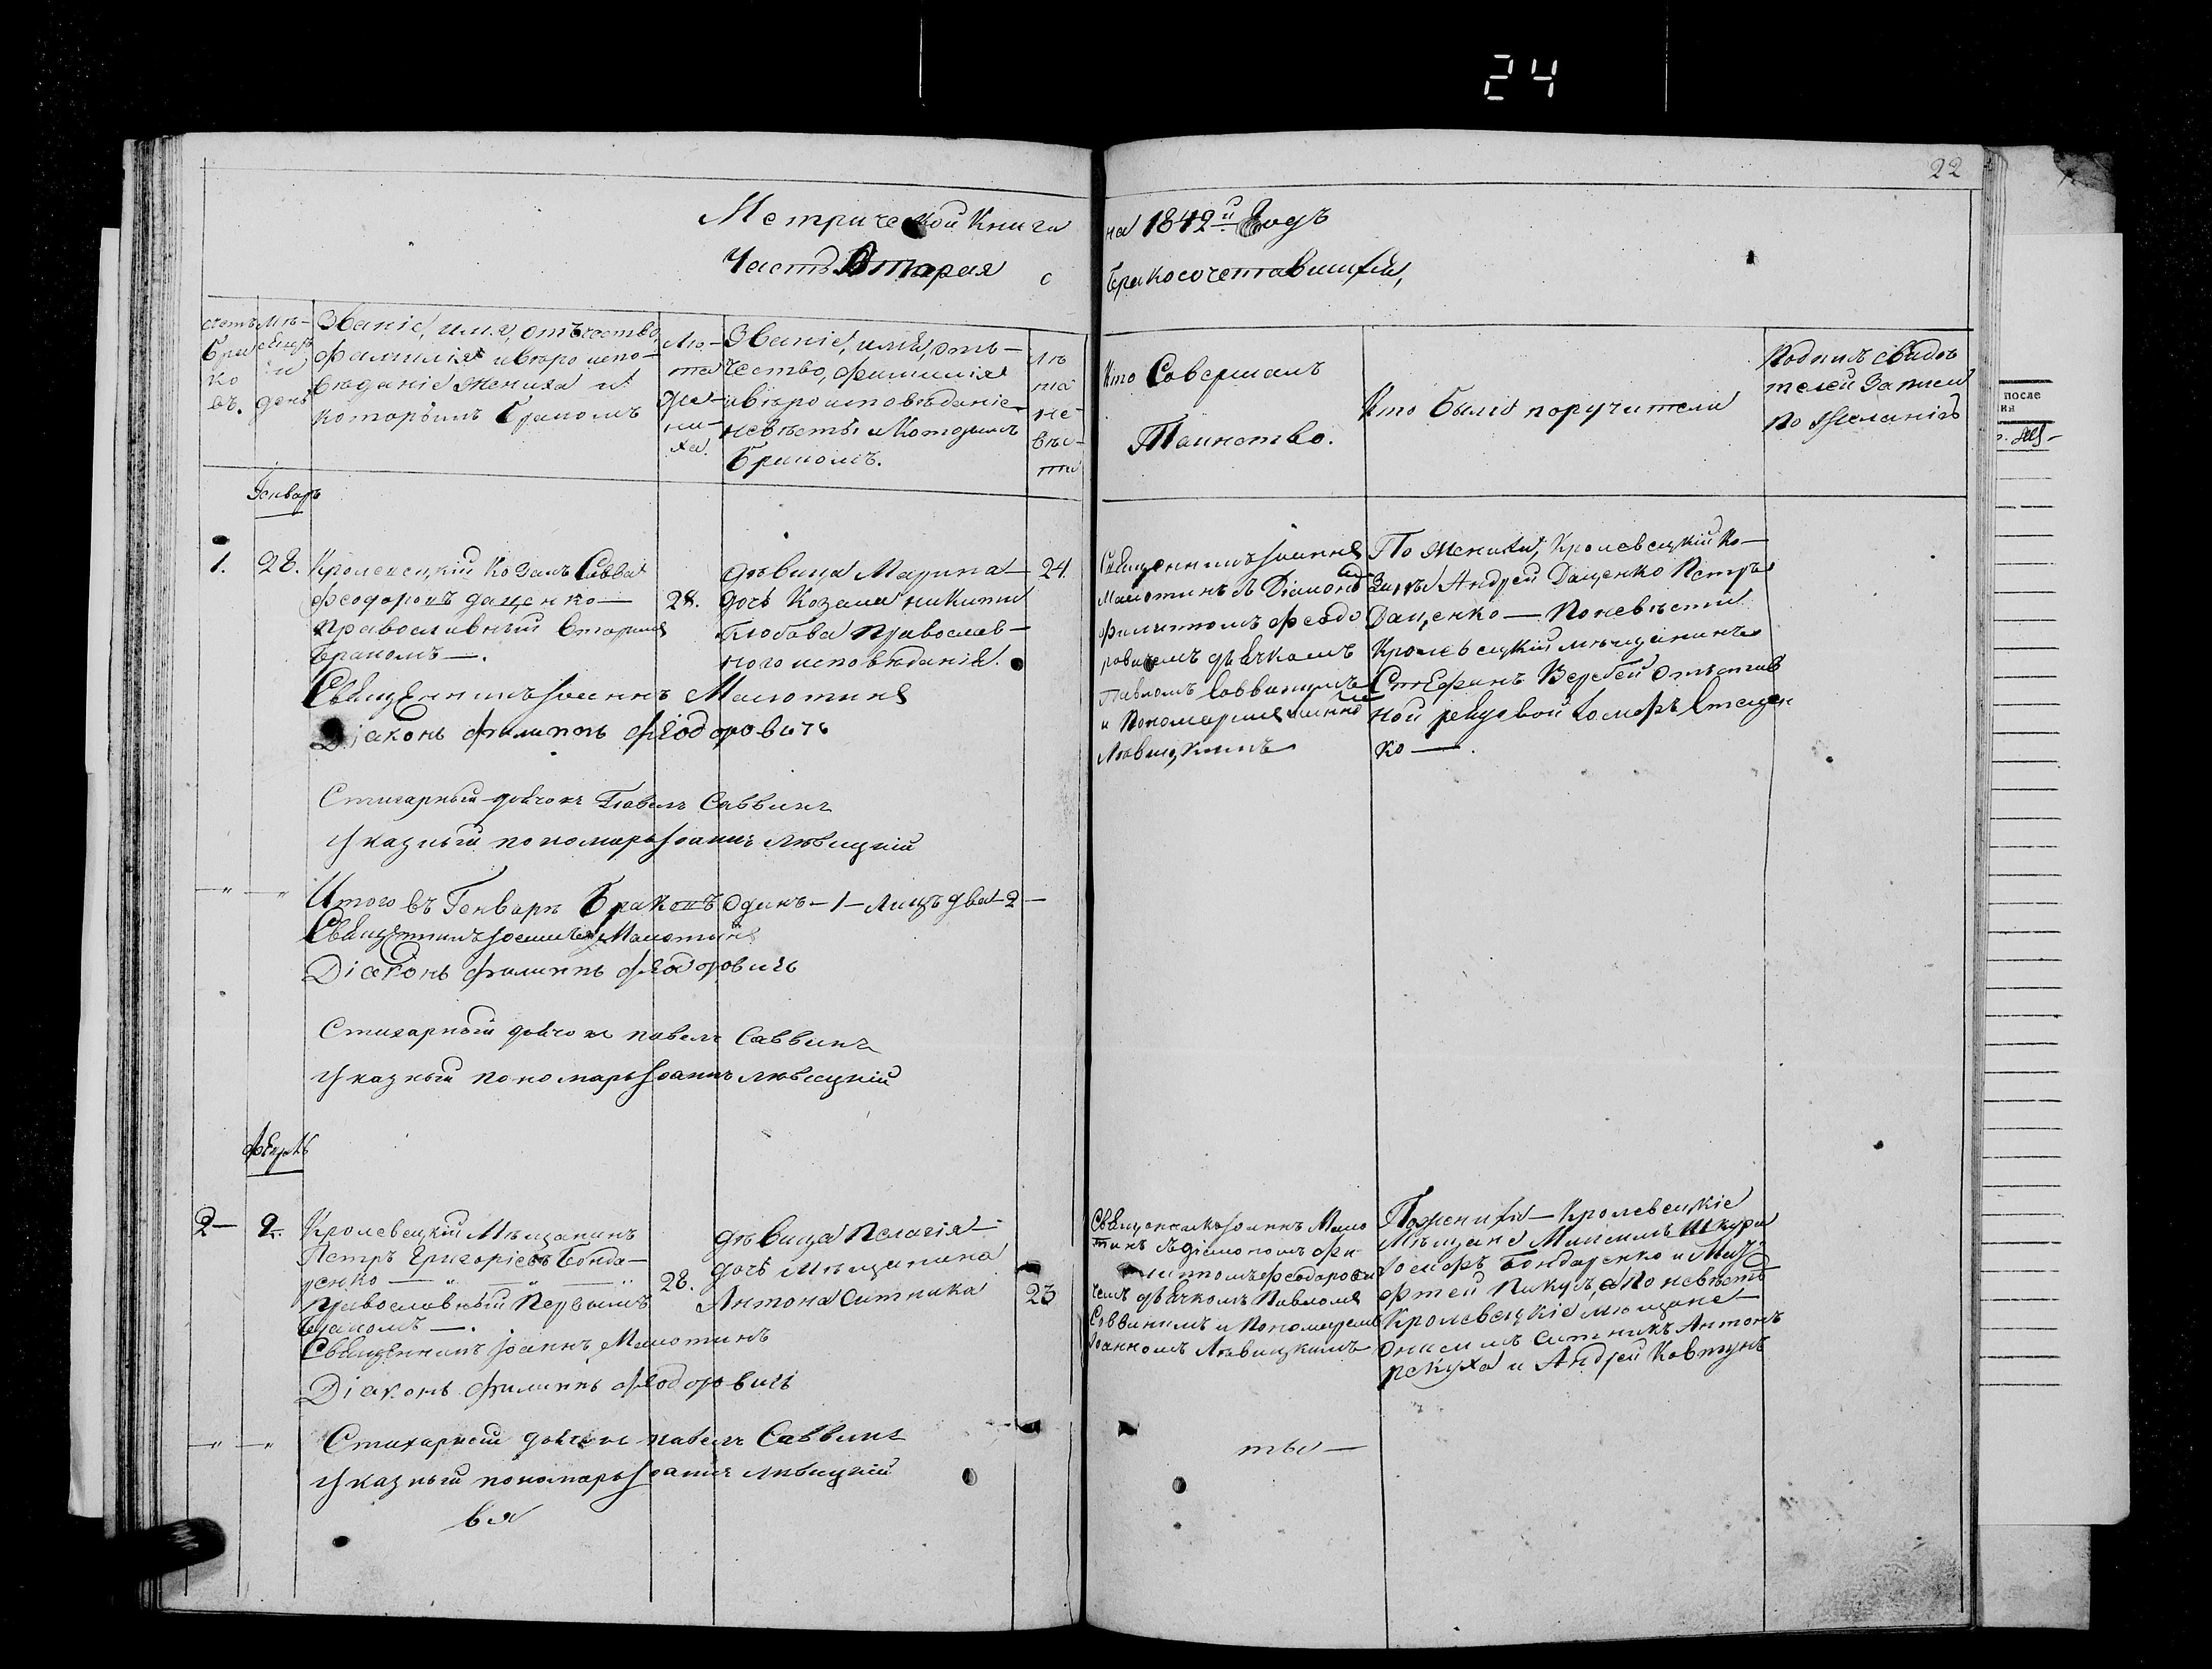 24
22
Метрической Книги на 1842й Годъ
Часть Вторая о Бракосочетавшихся,
счетъ браковъ.
Мѣсяцъ и день
Званіе, имя, отѣчество,
фамилія и вѣроиспо-
вѣданіе жениха и
которымъ бракомъ
Лѣ-
та
же-
ни-
ха.
Званіе, имя, отѣ-
чество, фамилія
и вѣроисповѣданіе
невѣсты и которымъ
бракомъ.
Лѣ
та
не-
вѣс-
ты
Кто Совершалъ
Таинство.
Кто были поручители
Подпись свидѣ
телей записи
по желанію
Генварь
1.
28.
Кролевецкій козакъ Савва
Феодоровъ Даценко —
православный вторымъ
бракомъ —.
28.
дѣвица Марина
дочь козака Никиты
православ-
ного исповѣданія.
24.
Священникъ Іоаннъ
Малютинъ съ Діакономъ
Филиппомъ Феодо
ровичемъ дьячкомъ
Павломъ Саввинымъ
и Пономаремъ Іоанно
Лѣвицкимъ
По женихѣ, Кролевецкій ко-
заки Андрей Даценко Петръ
Даценко — По невѣсти
Кролевецкій мѣщанинъ
Стефанъ Веребей отъстав
ной рядовой Іосифъ
ко —.
Священникъ Іоаннъ Малютинъ
Діаконъ Филиппъ Феодоровичь
Стихарный дьячокъ Павелъ Саввинъ
Указный пономарь Іоаннъ Лѣвицкій
Итого въ Генварѣ браковъ одинъ — 1 — лицъ два — 2 —
Священникъ Іоаннъ Малютинъ
Діаконъ Филиппъ Феодоровичь
Стихарный дьячокъ Павелъ Саввинъ
Указный пономарь Іоаннъ Лѣвицкій
2 —
9.
Кролевецкій Мѣщанинъ
Петръ Григоріевъ Бонда-
ренко —
православный первымъ
бракомъ —.
28.
дѣвица Пелагія
дочь мѣщанина
Антона Ситника
23
Священникъ Іоаннъ Малю
тинъ съ діакономъ Фи
липпомъ Феодорови
чемъ дьячкомъ Павломъ
Саввинымъ и Пономаремъ
Іоанномъ Лѣвицкимъ
По женихѣ — Кролевецкіе
Мѣщане Максимъ Шкура
Іосифъ Бондаренко и
Пикулъ, а по невѣсть
Кролевецкіе мѣщане
Онисимъ Ситникъ Антонъ
Рекуха и Андрей Ковтунъ
Священникъ Іоаннъ Малютинъ
Діаконъ Филиппъ Феодоровичь
Стихарный дьячокъ Павелъ Саввинъ
Указный пономарь Іоаннъ Лѣвицкій
вя
ты —
после